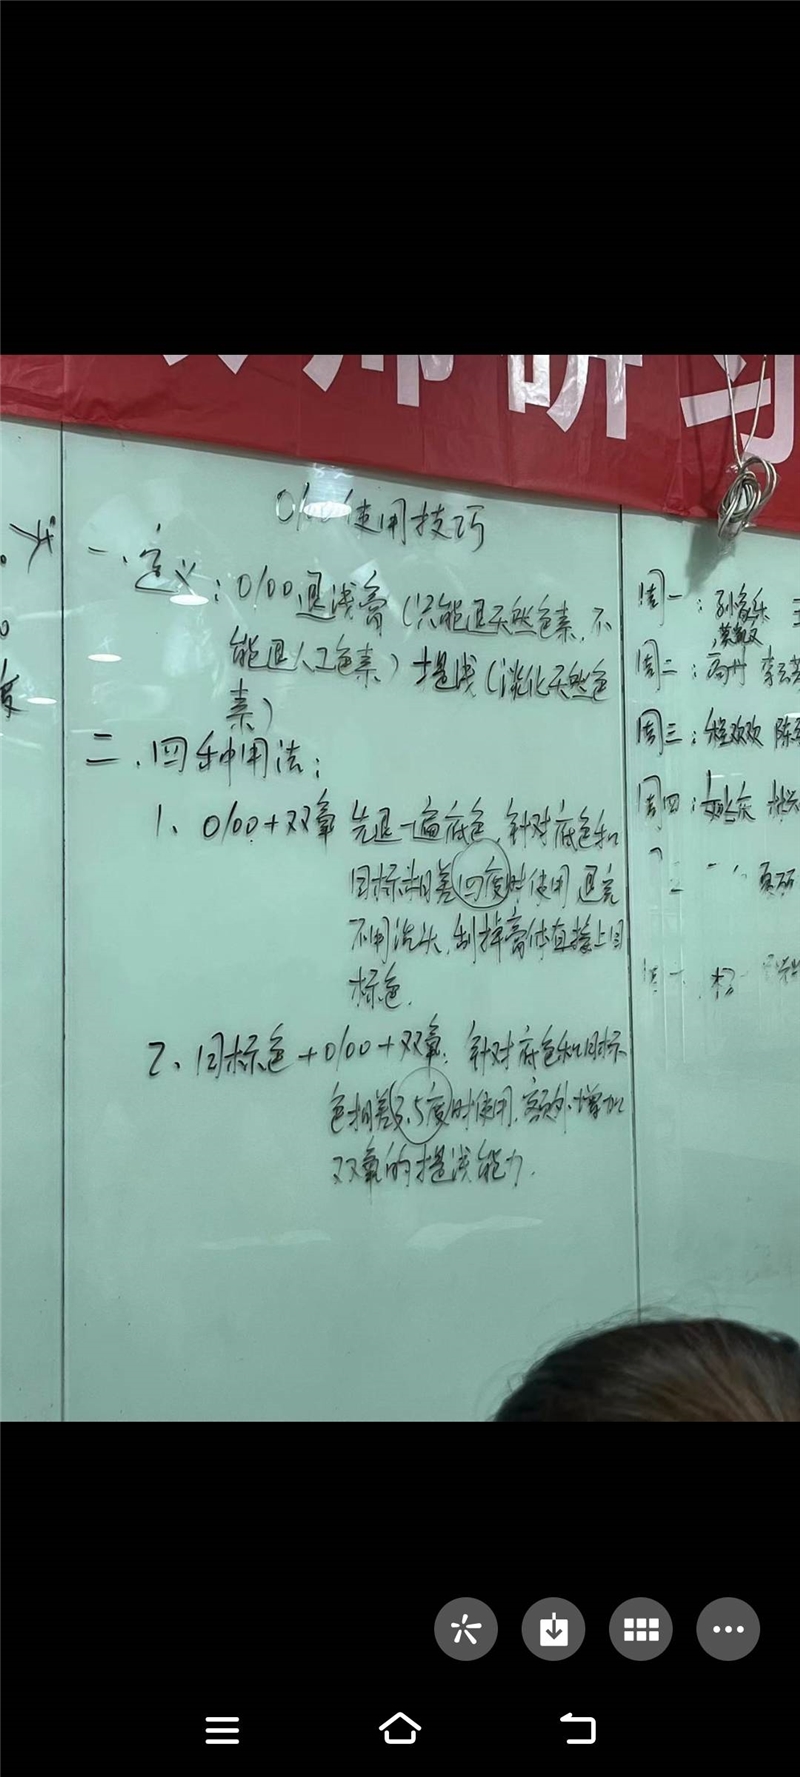 研习
0/00使用技巧
一、定义：0/00退浅膏（只能退天然色素，不
能退人工色素）提浅（淡化天然色
素）
二、四种用法：
1、0/00+双氧 先退一遍底色，针对底色和
目标相差四度时使用 退完
不用洗头，刮掉膏体直接上目
标色.
2、目标色+0/00+双氧：针对底色和目标
色相差3.5度时使用，额外增加
双氧的提浅能力.
度
周一：孙家乐
周二：
周三：程欢欢 陈
周四：